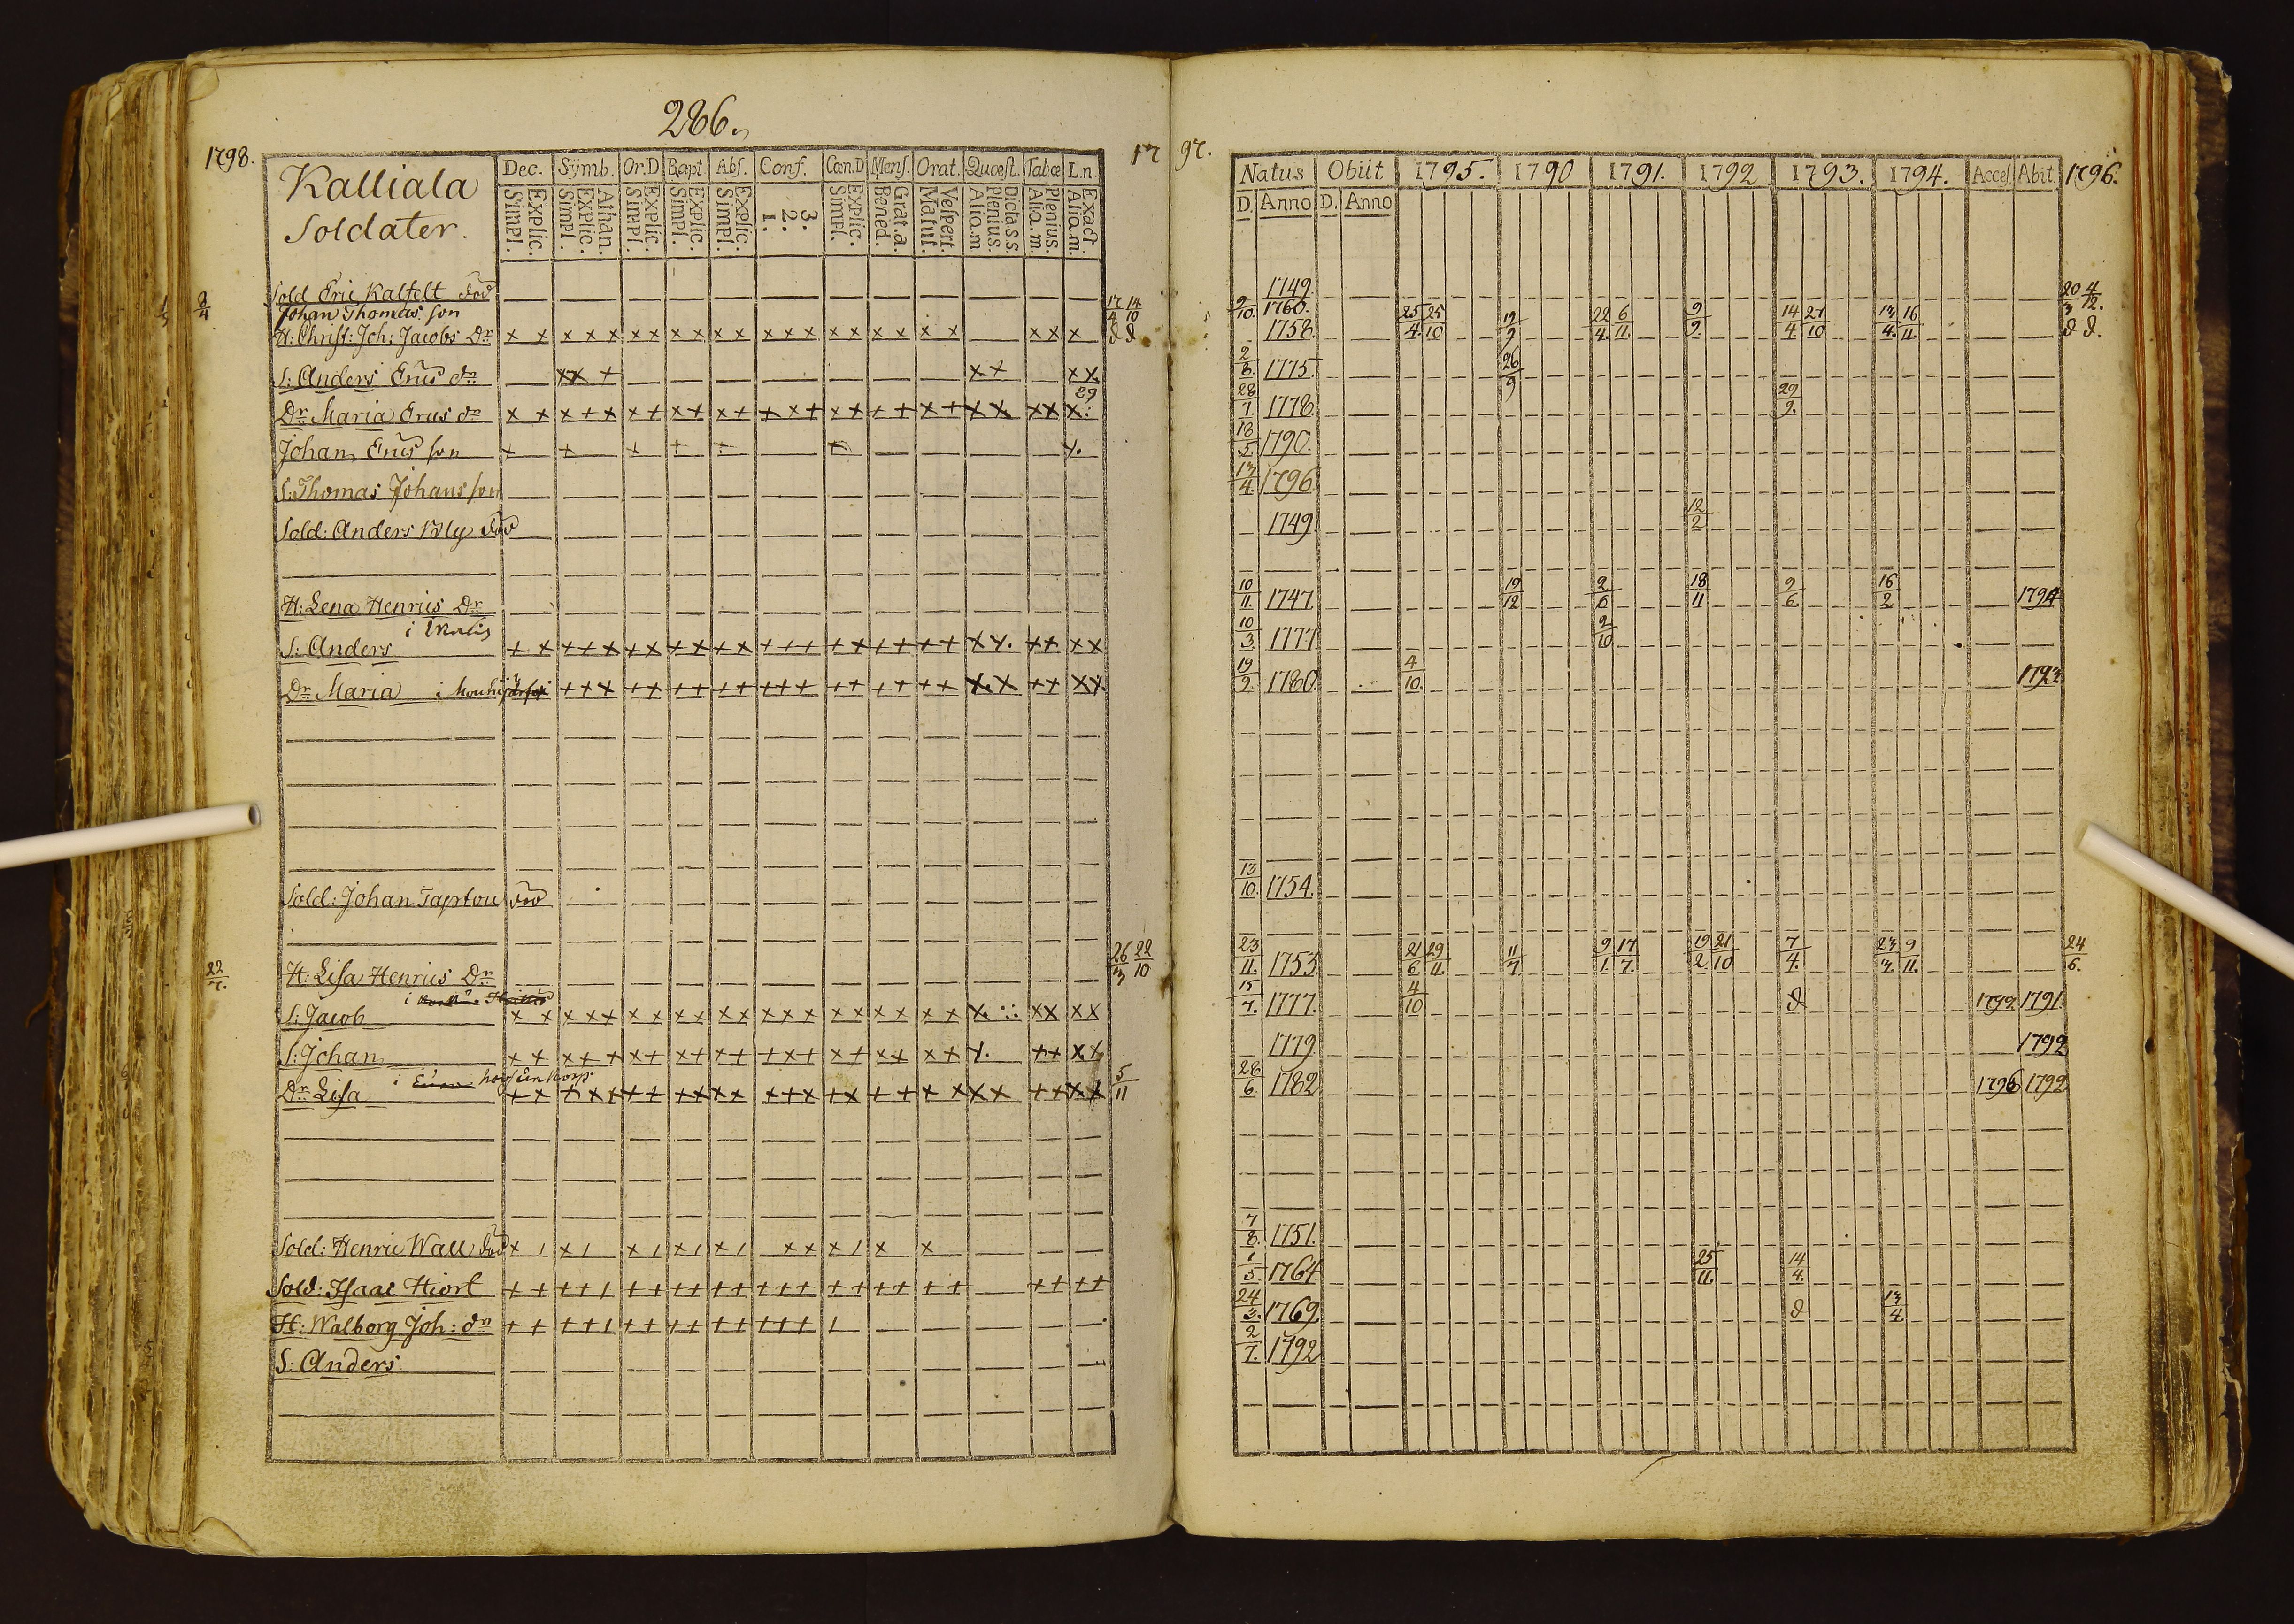 286.
1798.
17 97.
1796.
Kalliala
Soldater.
Dec. Symb. Or.D Bapt Abs. Conf. Cœn.D Mens. Orat. Quœst. Tabœ L.n.
Simpl. Explic. Simpl. Explic. Athan. Simpl. Explic. Simpl. Explic. Simpl. Explic. 1. 2. 3. Simpl. Explic. Bened. Grat.a. Matut. Vespert. Aliq.m Plenius. Dicta s s. Aliq.m. Plenius. Aliq.m. Exact
Natus Obiit 1795. 1790 1791. 1792 1793. 1794. Acces Abit
D. Anno D. Anno
Sold Eric Kalfelt död 1749.
2/4 Johan Thomas son 17/4 14/10 9/10. 1760. 20/3 4/12.
H: Christ: Joh: Jacobs Dr x x x x x x x x x x x x x x x x x x x x x x x x d d 1758. 25/4. 25/10 19/9 22/4. 6/11. 9/9. 14/4 27/10 13/4. 16/11. d d.
S: Anders Erics dn xx + x+ xx 2/8. 1775. 26/9
Dr Maria Erics dn x x x + x x + x + x + + x + x x + + x + x x x x x: 29 28/7. 1778. 29/9.
Johan Erics son + + + + + + x. 18/5. 1790.
S: Thomas Johans son 13/4. 1796.
Sold: Anders död 1749. 12/2
H: Lena Henrics Dr 10/11. 1747. 19/12 2/6 18/11 9/6. 16/2 1794
S: Anders i + x + + x + x x x x x + + + + x + + + + x x. + + x x 10/3. 1777. 2/10
Dr Maria i + + x + + + + + + + + + + + + + + + x. x + + x x. 19/9. 1780. 4/10. 1793.
Sold: Johan död 13/10. 1754.
22/7. H: Lisa Henrics Dr 26/3 22/10 23/11. 1753. 21/6. 29/11. 11/7. 9/1. 17/7. 19/2. 21/10 7/4. 23/3. 9/11. 24/6.
S: Jacob i x x x x x x x x x x x x x x x x x x x x x. x x x x 15/7. 1777. 4/10 d 1792. 1791.
S: Johan x x x + + x + x + + + + x + x + x x x + x. + + x x 1779. 1792
Dr Lisa i + x + x + + + x x x x + + x + x + + x x x x + + x x 5/11 28/6. 1782. 1796 1792
Sold: Henric Wall död x 1 x 1 x 1 x 1 x 1 x x x 1 x x 7/8. 1751.
Sold: Isaac Hiort + + + + 1 + + + + + + + + + + + + + + + + + + + 1/5. 1764. 25/11. 14/4.
H: Walborg Joh: dn + + + + 1 + + + + + + + + + 1 24/3. 1769. d 13/4
S: Anders 2/7. 1792